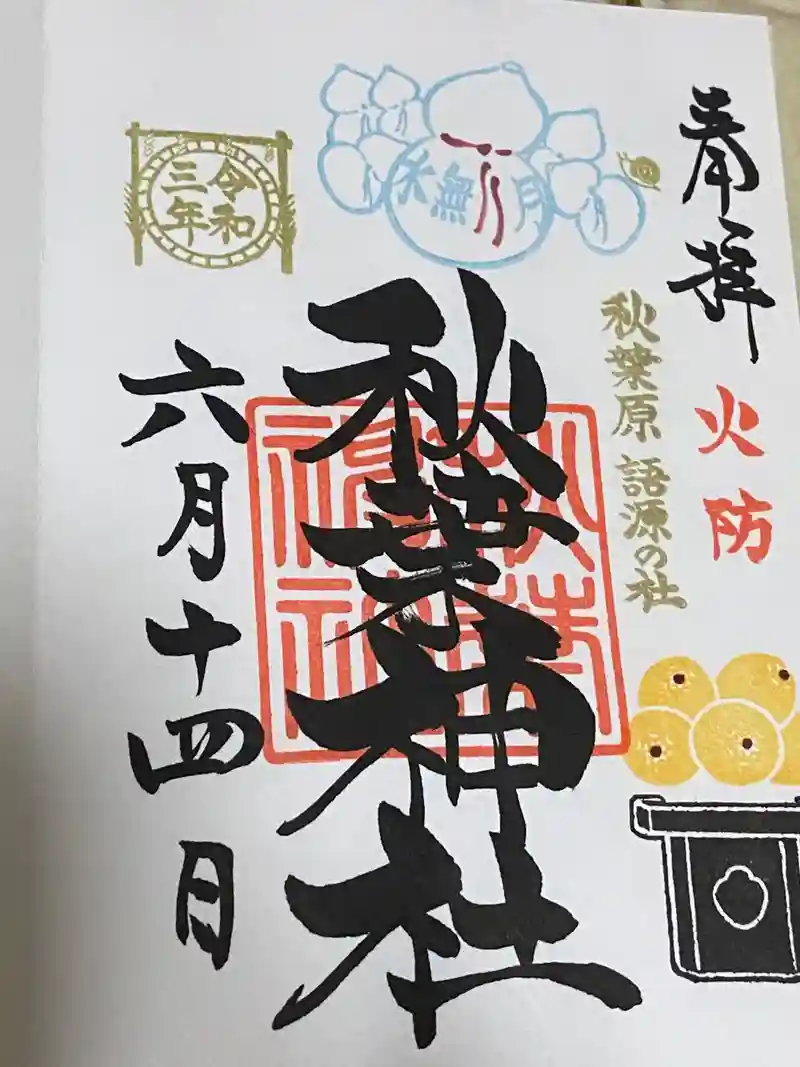 奉拝
火防
秋葉原 語源の社
水無月
秋葉神社
令和
三年
六月十四日